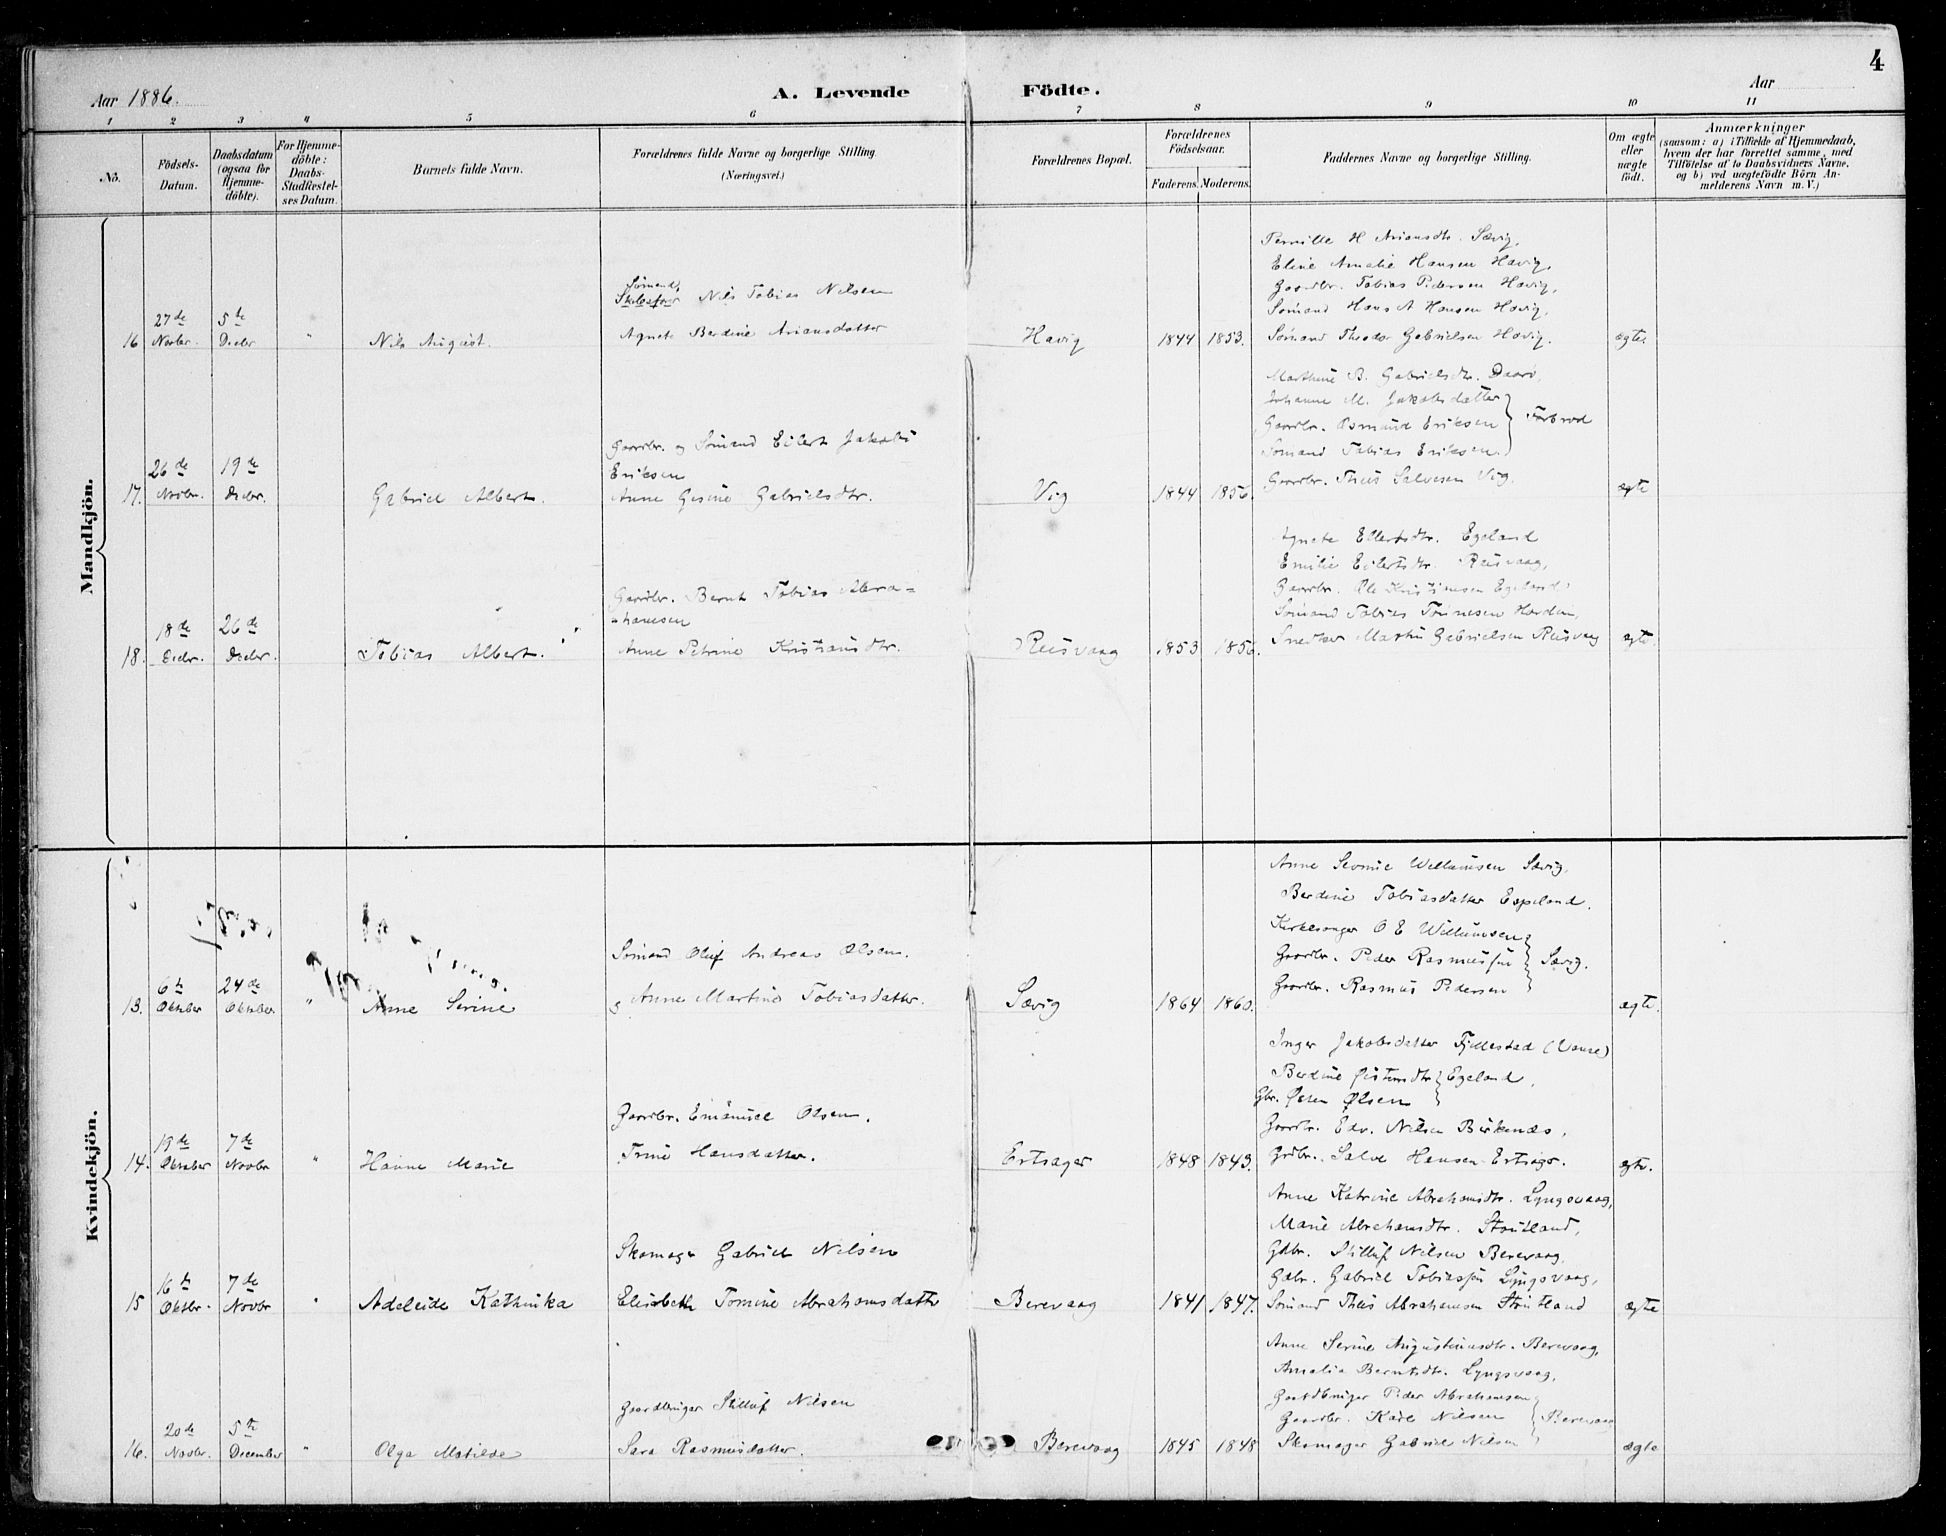 4
Aar 1886.
A. Levende Födte.
Aar
1 2 3 4 5 6 7 8 9 10 11
No.
Födsels-Datum.
Daabsdatum (ogsaa for Hjemme-döbte).
For Hjemme-döbte: Daabs-Stadfæstel-ses Datum.
Barnets fulde Navn.
Forældrenes fulde Navne og borgerlige Stilling. (Næringsvei.)
Forældrenes Bopæl.
Forældrenes Födselsaar.
Faderens. Moderens.
Faddernes Navne og borgerlige Stilling.
Om ægte eller uægte födt.
Anmærkninger
(saasom: a) i Tilfælde af Hjemmedaab, hvem der har forrettet samme, med Tilföielse af to Daabsvidners Navne, og b) ved uægtefödte Börn An-melderens Navn m. V.)
Mandkjön.
Pernille H Ariansdtr. Sævig,
Eline Amalie Hansen Havig,
Gaardbr. Tobias Pedersen Havig,
Sømand Hans A Hansen Havig,
Sømand,
Nils Tobias Nilsen
16 27de Novbr. 5te Decbr " Nils August. Agnete Berdine Ariansdatter Havig 1844 1853. Sømand Theodor Gabrielsen Havig. ægte.
Marthine B. Gabrielsdtr.
Johanne M. Jakobsdatter
Gaardbr. Osmund Eriksen
Sømand Tobias Eriksen.
Gaardbr. og Sømand Eilert Jakobs
Eriksen
17. 26de Novbr. 19de Decbr. Gabriel Albert. Anne Gesine Gabrielsdtr. Vig 1844 1856. Gaardbr. Theis Salvesen Vig. ægte
Agnete Ellertsdtr. Egeland
Emilie Eilertsdtr. Reisvaag,
Gaardbr. Ole Kristiansen Egeland,
Sømand Tobias Tønnesen
Gaardbr. Bernt Tobias Abra=
=hamsen
18. 18de Decbr. 26de Decbr. Tobias Albert. Anne Petrine Kristiansdtr. Reisvaag 1853 1856. Snedker Martin Gabrielsen Reisvaag ægte.
Kvindekjön.
Anne Severine Willumsen Sævig,
Berdine Tobiasdatter Espeland.
Kirkesanger O E Willumsen
Gaardbr. Peder Rasmussen Sævig.
Gaardbr. Rasmus Pedersen
Sømand Oluf Andreas Olsen.
13. 6te Oktober 24de Oktober " Anne Serine og Anne Martine Tobiasdatter. Sævig 1864 1860. ægte.
Inger Jakobsdatter Fjellestad (Vanse)
Berdine Østensdtr Egeland,
Gbr. Østen Olsen
Gaardbr. Edv. Nilsen Birkenæs,
Gaardbr. Emanuel Olsen.
14. 19de Oktober 7de Novbr " Hanne Marie Trine Hansdatter. Ertsager 1848 1843. Grdbr. Salve Hansen Ertsager. ægte.
Anne Katrine Abrahamsdtr. Lyngsvaag,
Marie Abrahamsdtr. Stoutland,
Gdbr. Stilluf Nilsen Berevaag,
Gdbr. Gabriel Tobiassen Lyngsvaag,
Skomager Gabriel Nilsen
15 16de Oktbr. 7de Novbr " Adeleide Kathinka Elisabeth Tomine Abrahamsdatter Berevaag 1841 1847. Sømand Theis Abrahamsen Stoutland ægte
Anne Serine Augustinusdtr. Berevaag,
Amalia Berntsdtr. Lyngsvaag,
Gaardbruger Peder Abrahamsen
Gaardbr. Karl Nilsen Berevaag
Gaardbruger Stilluf Nilsen
16. 20de Novbr. 5te December " Olga Matilde Sara Rasmusdatter. Berevaag 1845 1848 Skomager Gabriel Nilsen ægte